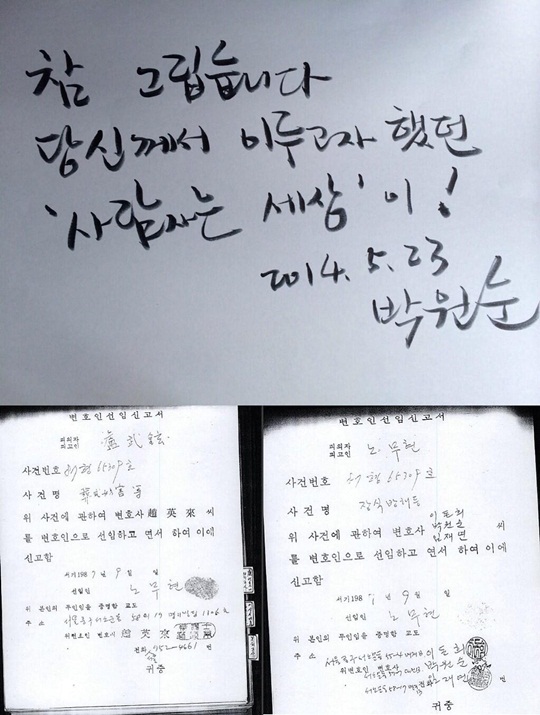 참 그립습니다
당신께서 이루고자 했던
'사람사는 세상'이!
2014. 5. 23
박원순
변호인선임신고서
피의자
피고인
盧武鉉
사건번호 65709호
사 건 명
위 사건에 관하여 변호사 趙英來 씨
를 변호인으로 선임하고 연서 하여 이에
신고함
서기 1987년 9월 일
선임인 노무현
위 본인의 무인임을 증명함 교도
주 소
위변호인 변호사 趙英來
전화 752-4661 번
귀중
변호인선임신고서
피의자
피고인
노무현
사건번호 65709호
사 건 명 장식방해등
이돈희
위 사건에 관하여 변호사 박원순 씨
임재연
를 변호인으로 선임하고 연서 하여 이에
신고함
서기 1987년 9월 일
선임인 노무현
위 본인의 무인임을 증명함 교도
주 소
이돈희
위변호인 변호사 박원순
전화 임재연
귀중